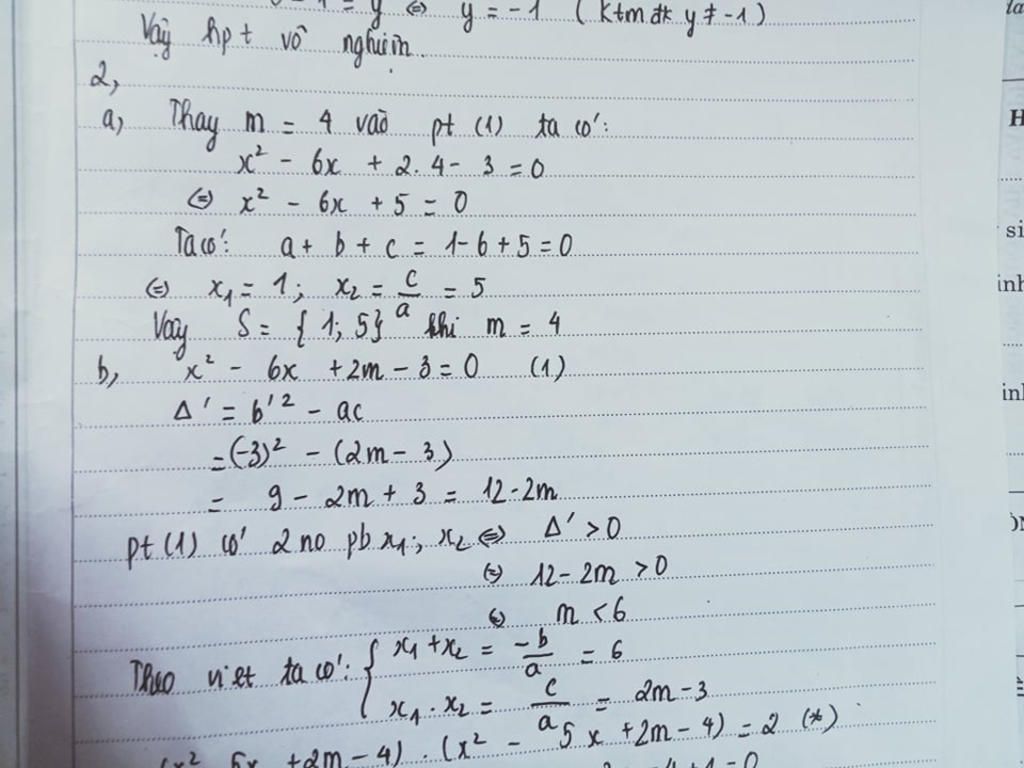 = y ⇔ y = -1 (ktm đk y ≠ -1)
Vậy hpt vô nghiệm.
2,
a, Thay m = 4 vào pt (1) ta có:
x² - 6x + 2.4 - 3 = 0
⇔ x² - 6x + 5 = 0
Ta có: a + b + c = 1 - 6 + 5 = 0
⇔ x₁ = 1; x₂ = c/a = 5
Vậy S = {1; 5} khi m = 4
b, x² - 6x + 2m - 3 = 0 (1)
Δ' = b'² - ac
= (-3)² - (2m - 3)
= 9 - 2m + 3 = 12 - 2m
pt (1) có 2 no pb x₁; x₂ ⇔ Δ' > 0
⇔ 12 - 2m > 0
⇔ m < 6
Theo viet ta có: { x₁ + x₂ = -b/a = 6
x₁ . x₂ = c/a = 2m - 3
(x² 5x + 2m - 4) . (x² - 5x + 2m - 4) = 2 (*)